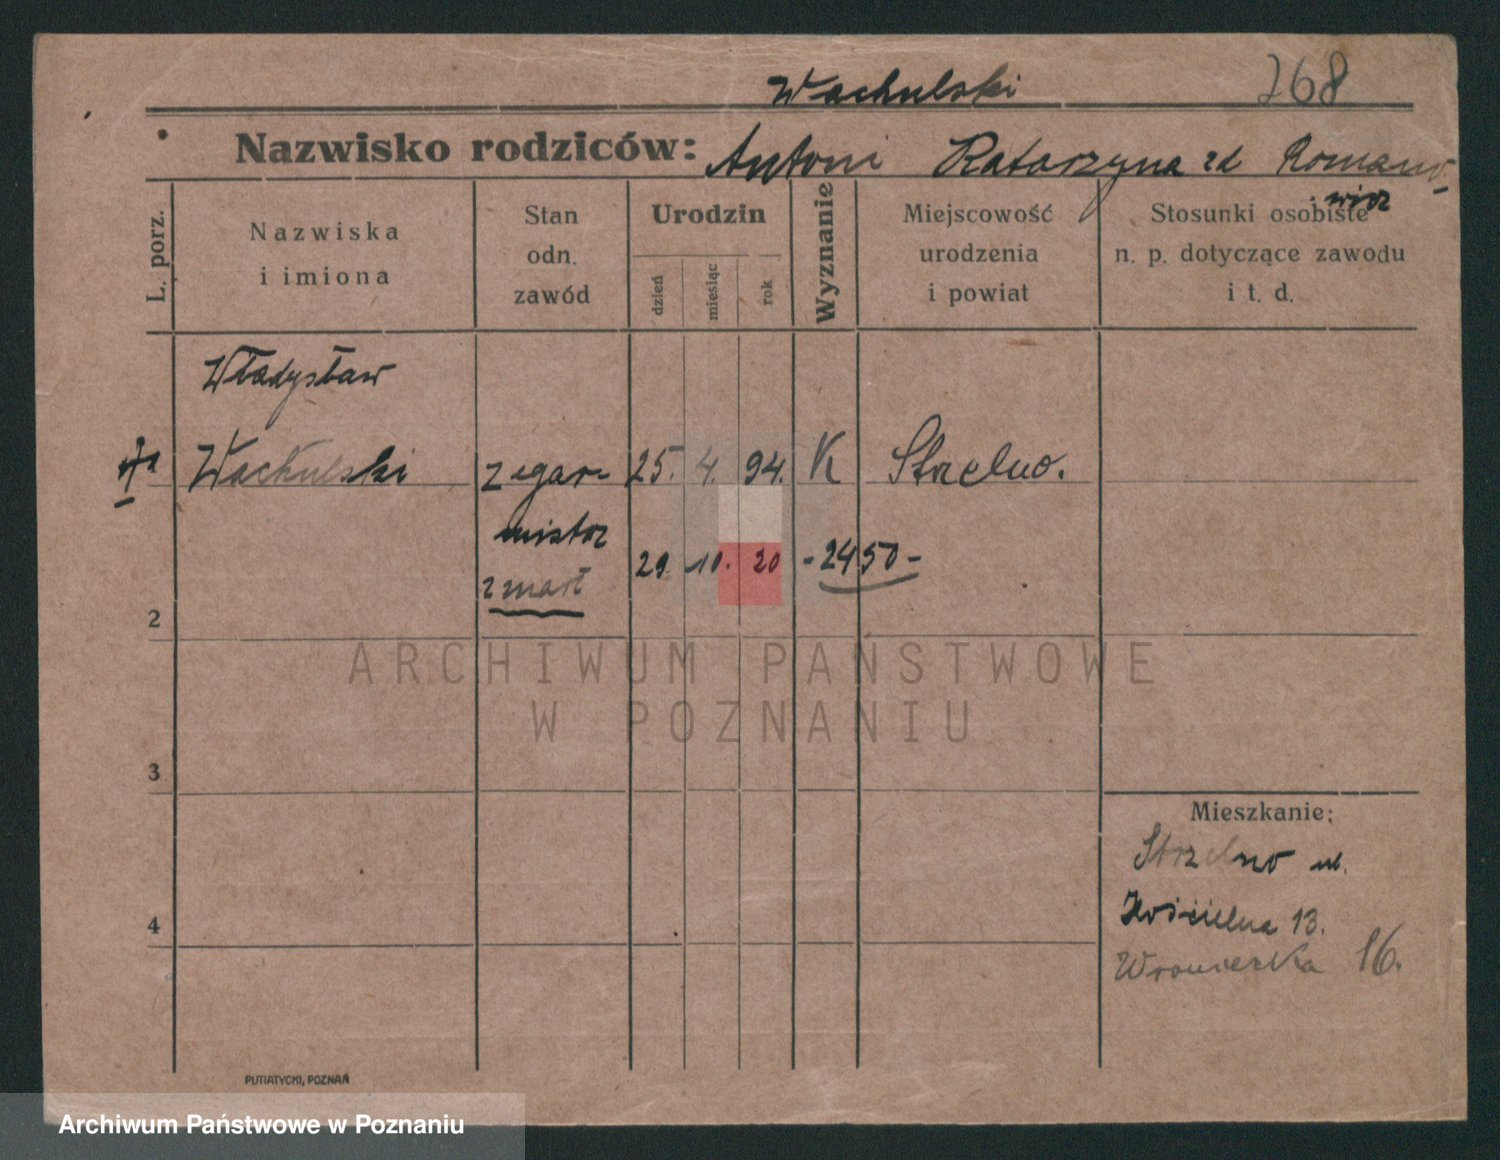 Wachulski 268
Nazwisko rodziców: Antoni Katarzyna zd Romano-
wicz
L. porz.
Nazwiska
i imiona
Stan
odn.
zawód
Urodzin
dzień
miesiąc
rok
Wyznanie
Miejscowość
urodzenia
i powiat
Stosunki osobiste
n. p. dotyczące zawodu
i t. d.
Władysław
Wachulski zegar- 25. 4. 94. K Strzelno.
mistrz
29. 10. 20 - 2450 -
zmarł
2
3
4
Mieszkanie:
Strzelno ul.
Kościelna 13.
Wroniecka 16.
PUTIATYCKI, POZNAŃ
ARCHIWUM PAŃSTWOWE
W POZNANIU
Archiwum Państwowe w Poznaniu